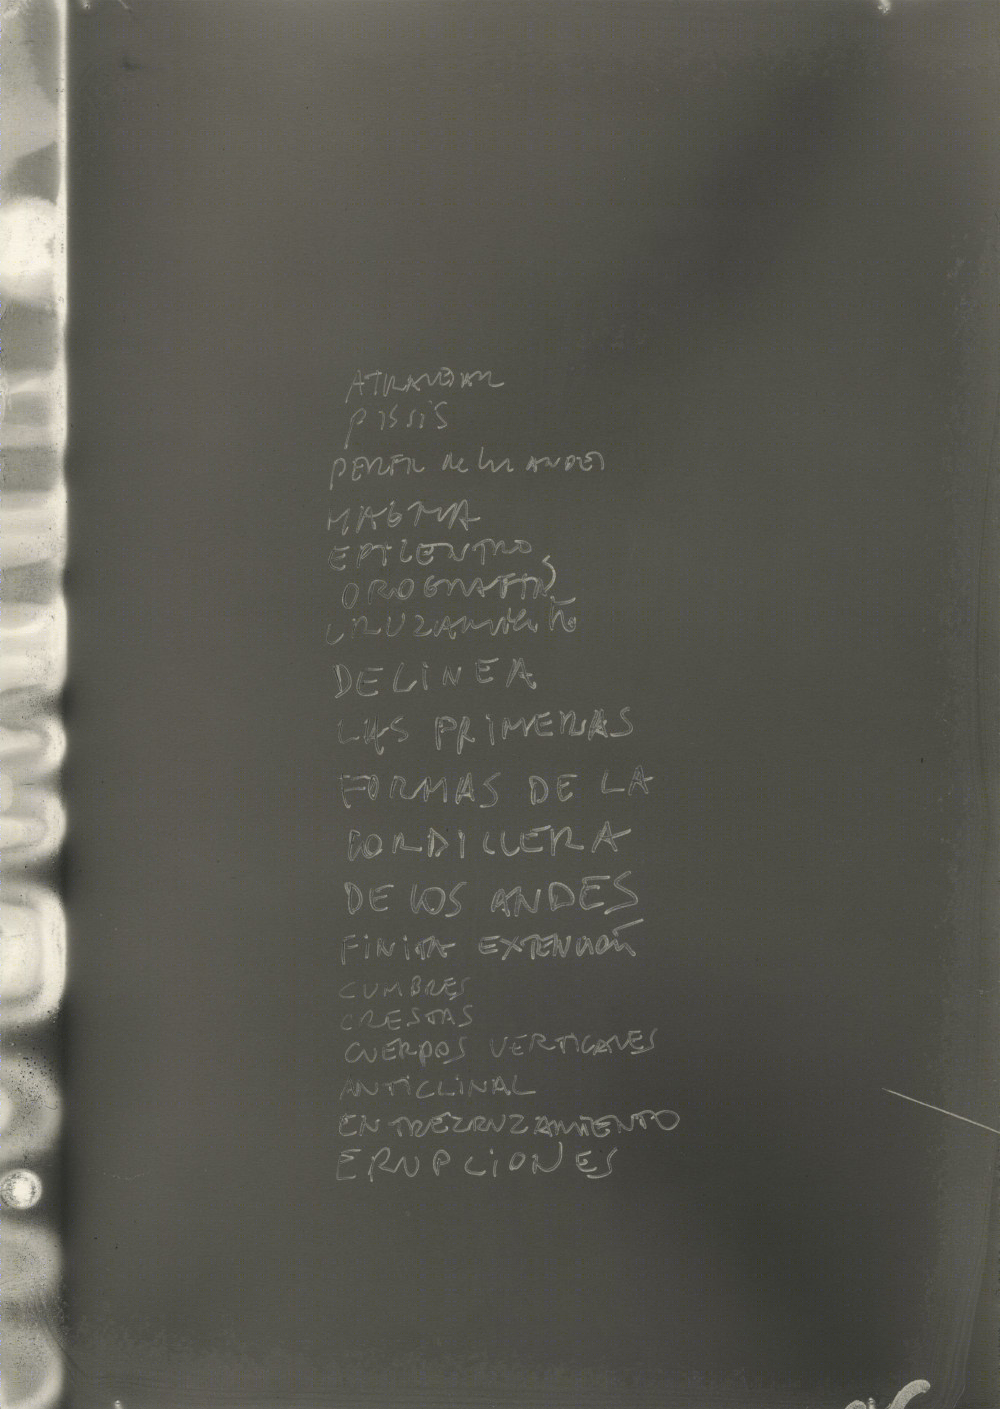 ATRAVESAR
PISSIS
PERFIL de los ANDES
MAGMA
EPICENTRO
OROGRAFIA
CRUZAMIENTO
DELINEA
LAS PRIMERAS
FORMAS DE LA
CORDILLERA
DE LOS ANDES
FINITA EXTENSIÓN
CUMBRES
CRESTAS
CUERPOS VERTICALES
ANTICLINAL
ENTRECRUZAMIENTO
ERUPCIONES